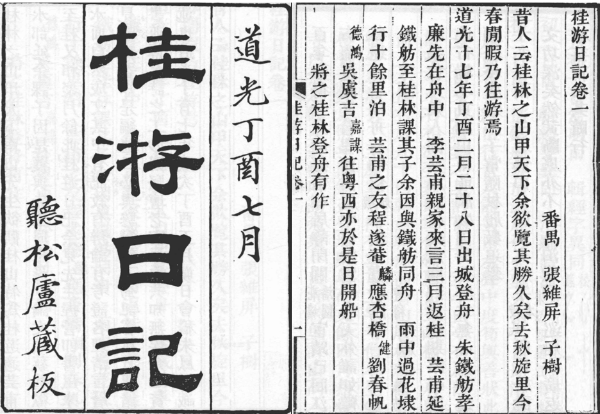 道光丁酉七月
桂游日記
聽松廬藏板
桂游日記卷一
番禺 張維屏 子樹
昔人云桂林之山甲天下余欲覽其勝久矣去秋旋里今
春閒暇乃往游焉
道光十七年丁酉二月二十八日出城登舟 朱鐵舫孝
廉先在舟中 李芸甫親家來言三月返桂 芸甫延
鐵舫至桂林課其子余因與鐵舫同舟 雨中過花埭
行十餘里泊 芸甫之友程遂菴麟應杏橋健劉春帆
德鴻吳虞吉嘉謀往粵西亦於是日開船
將之桂林登舟有作
桂游日記卷一 一